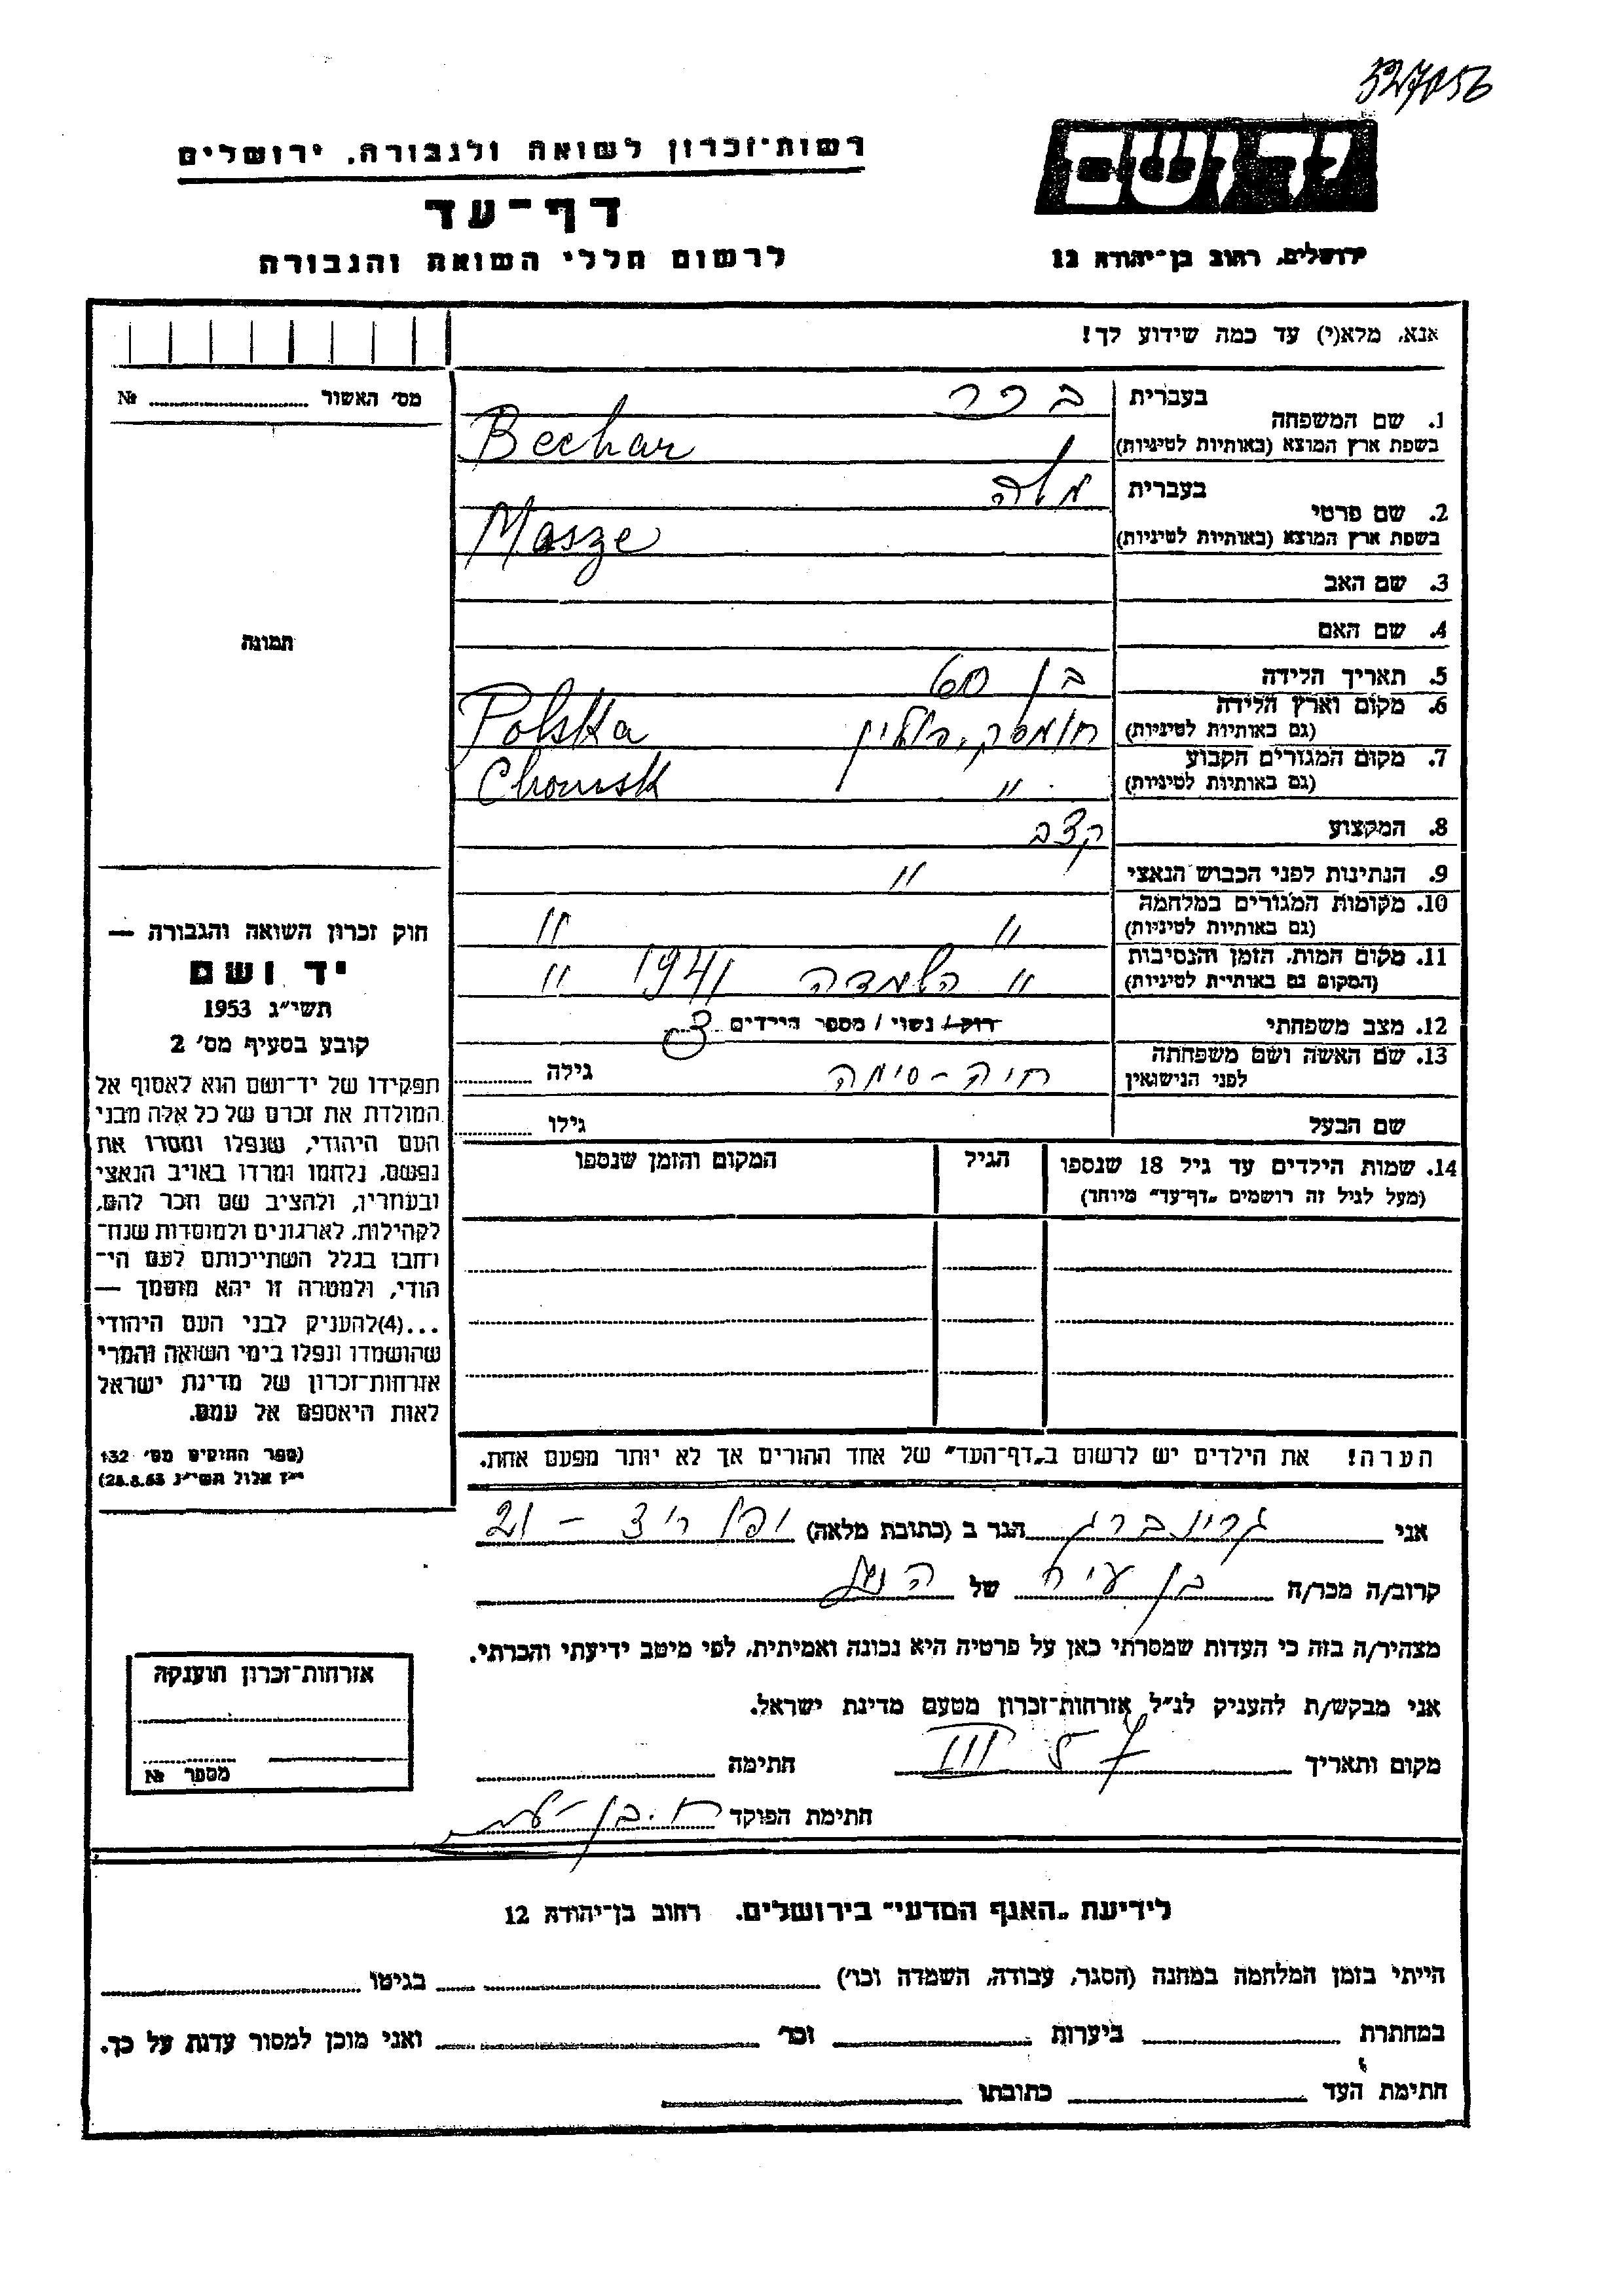 527056
יד ושם
ירושלים, רחוב בן־יהודה 12
רשות־זכרון לשואה ולגבורה, ירושלים
דף־עד
לרשום חללי השואה והגבורה
אנא, מלא(י) עד כמה שידוע לך!
מס׳ האשור № 
תמונה
חוק זכרון השואה והגבורה —
יד ושם
תשי״ג 1953
קובע בסעיף מס׳ 2
תפקידו של יד־ושם הוא לאסוף אל
המולדת את זכרם של כל אלה מבני
העם היהודי, שנפלו ומסרו את
נפשם, נלחמו ומרדו באויב הנאצי
ובעוזריו, ולהציב שם וזכר להם,
לקהילות, לארגונים ולמוסדות שנח־
רחבו בגלל השתייכותם לעם הי־
הודי, ולמטרה זו יהא מוסמך —
...(4)להעניק לבני העם היהודי
שהושמדו ונפלו בימי השואה והמרי
אזרחות־זכרון של מדינת ישראל
לאות היאספם אל עמם.
(ספר החוקים מס׳ 132
י״ז אלול תשי״ג 28.8.53)
1. שם המשפחה בעברית בכר
בשפת ארץ המוצא (באותיות לטיניות) Bechar
2. שם פרטי בעברית משה
בשפת ארץ המוצא (באותיות לטיניות) Masze
3. שם האב
4. שם האם
5. תאריך הלידה בן 60
6. מקום וארץ הלידה
(גם באותיות לטיניות) חומסק, פולין Polska
7. מקום המגורים הקבוע
(גם באותיות לטיניות) " Chomsk
8. המקצוע קצב
9. הנתינות לפני הכבוש הנאצי "
10. מקומות המגורים במלחמה
(גם באותיות לטיניות) " "
11. מקום המות, הזמן והנסיבות
(המקום גם באותיות לטיניות) " השמדה 1941 "
12. מצב משפחתי רווק / נשוי / מספר הילדים 3
13. שם האשה ושם משפחתה
לפני הנישואין חיה - סימה גילה
שם הבעל גילו
14. שמות הילדים עד גיל 18 שנספו הגיל המקום והזמן שנספו
(מעל לגיל זה רושמים „דף־עד״ מיוחד)
הערה! את הילדים יש לרשום ב„דף־העד״ של אחד ההורים אך לא יותר מפעם אחת.
אני גרינברג הגר ב (כתובת מלאה) יפו 21
קרוב/ה מכר/ה בן עיר של הנ״ל
מצהיר/ה בזה כי העדות שמסרתי כאן על פרטיה היא נכונה ואמיתית, לפי מיטב ידיעתי והכרתי.
אני מבקש/ת להעניק לנ״ל אזרחות־זכרון מטעם מדינת ישראל.
מקום ותאריך III 57 חתימה
חתימת הפוקד
אזרחות־זכרון הוענקה
מספר №
לידיעת „האגף המדעי״ בירושלים, רחוב בן־יהודה 12
הייתי בזמן המלחמה במחנה (הסגר, עבודה, השמדה וכו׳) בגיטו
במחתרת ביערות וכו׳ ואני מוכן למסור עדות על כך.
חתימת העד כתובתו